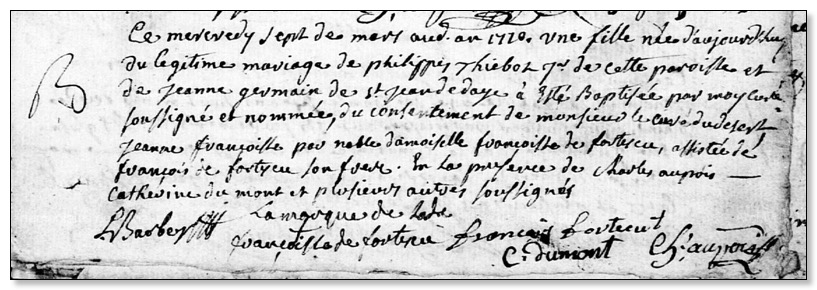 B
Ce mercredy sept de mars aud. an 1720, une fille née d'aujourd'huy
du legitime mariage de philippe thiebot de cette paroisse et
de jeanne germain de st jean de daye à esté Baptisée par moy curé
soussigné et nommée, du consentement de monsieur le curé du desert
jeanne françoisse par noble damoiselle françoisse de fortescu, assistée de
françois de fortescu son frere. En la presence de Charles aupois
Catherine du mont et plusieurs autres soussignés
La marque de ladte
françoisse de fortescu françois fortecut
C. dumont Ch. aupois